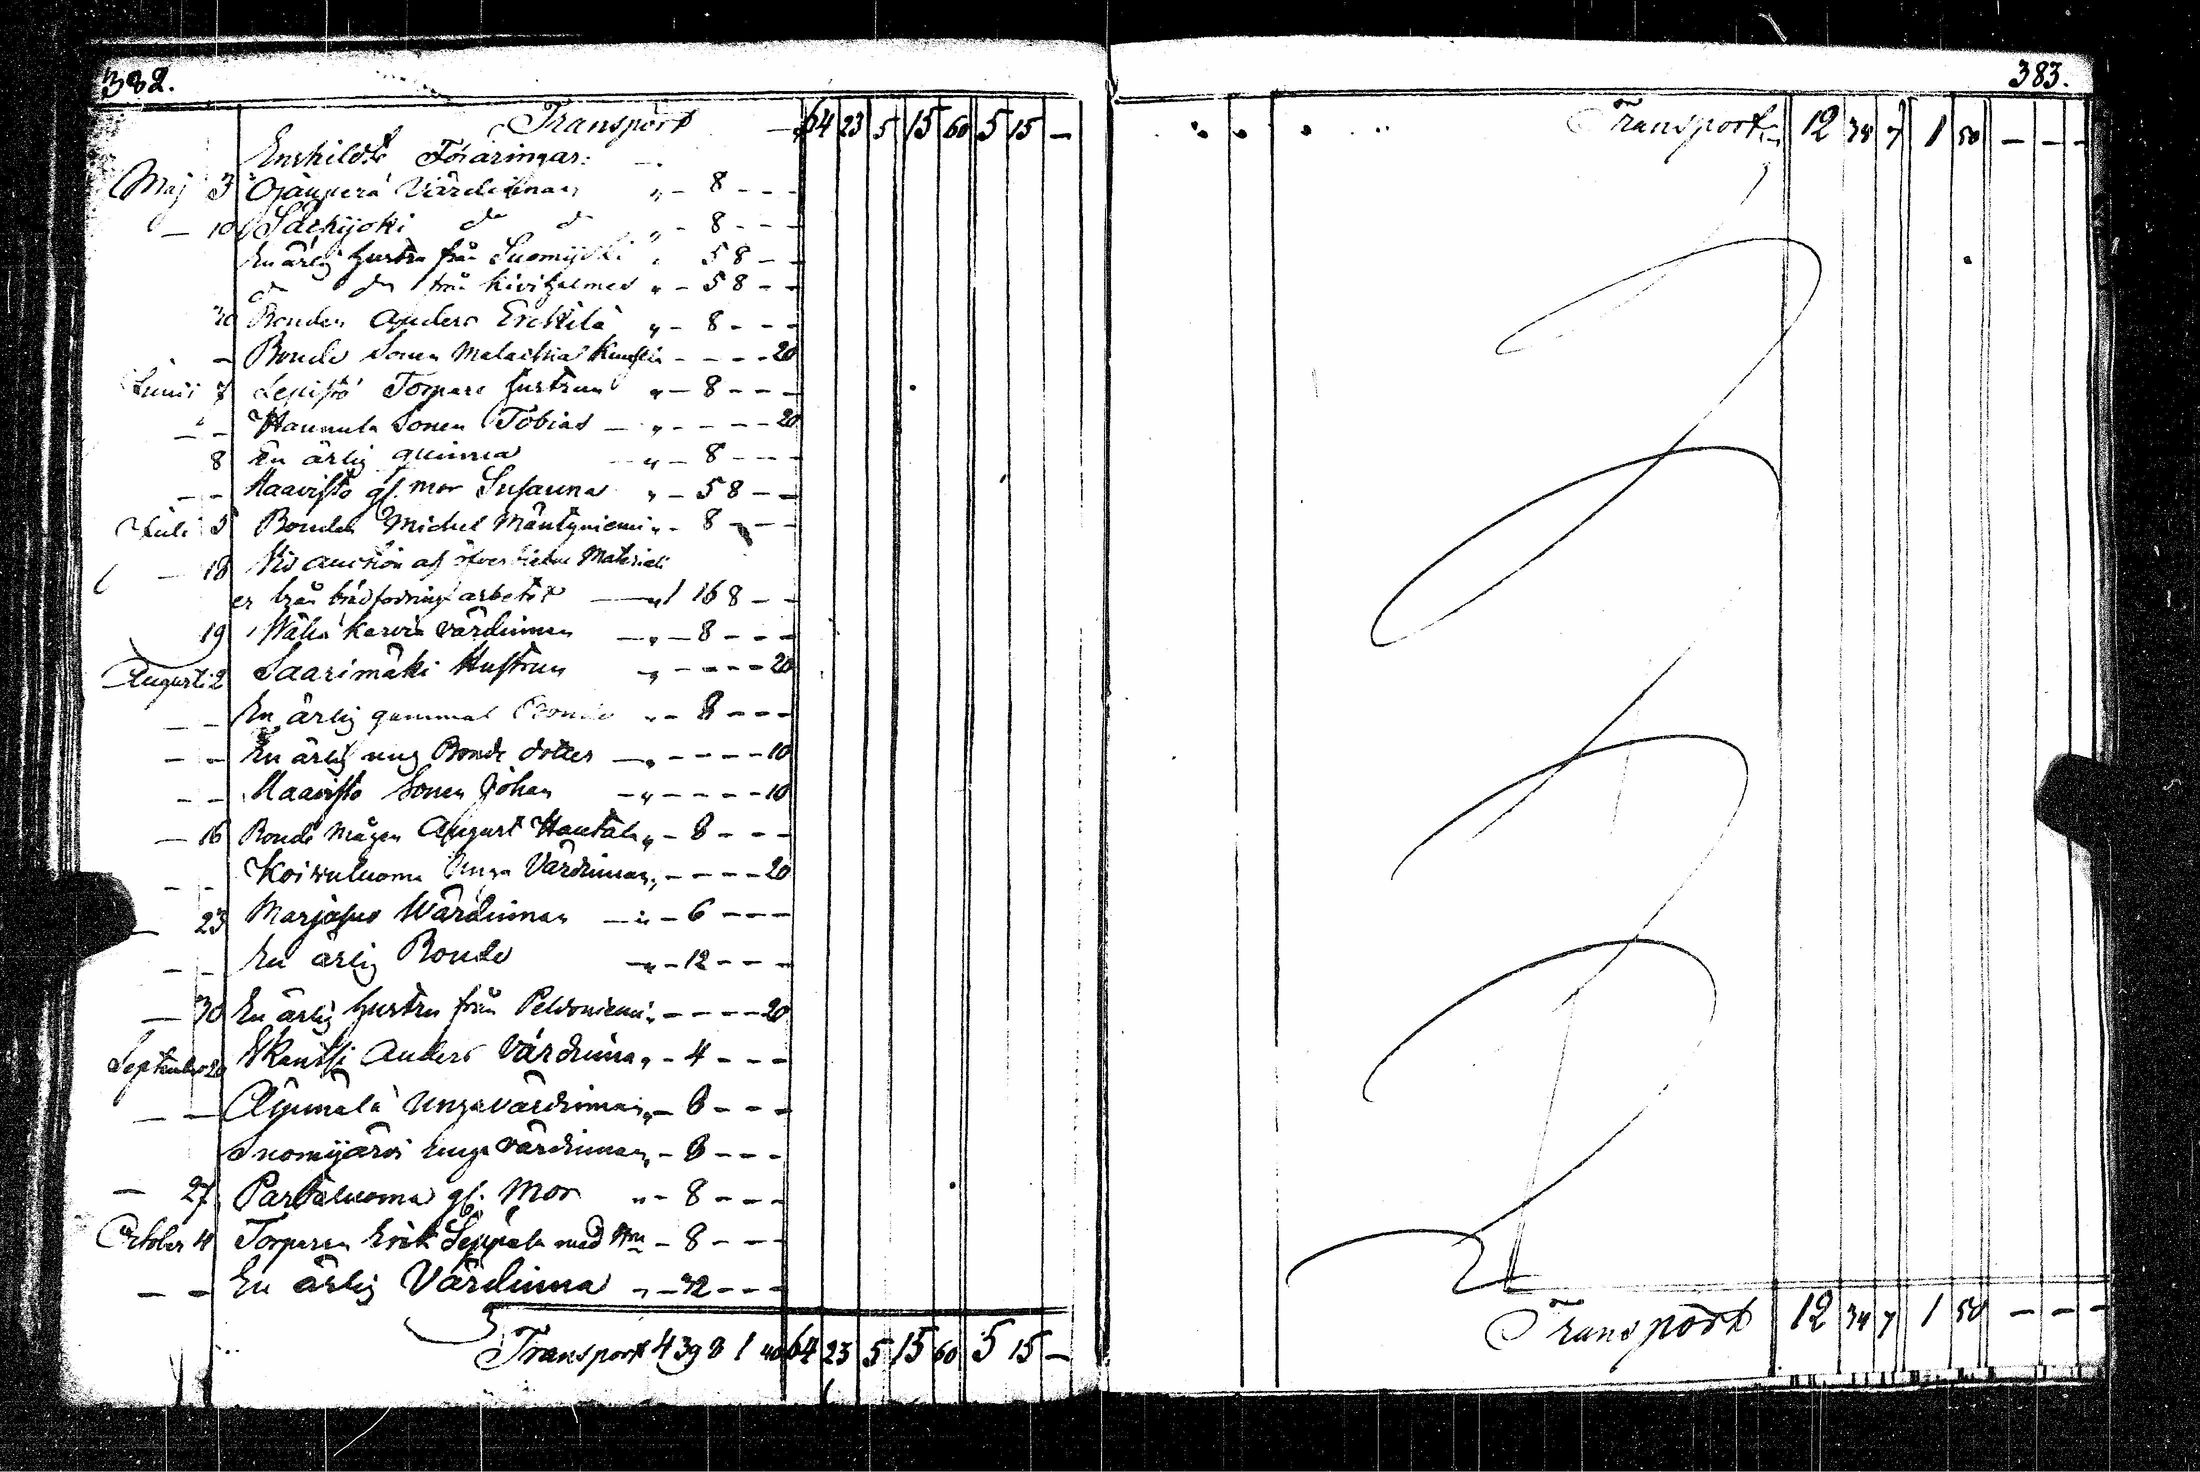 382.
Transport — 64 23 5 15 60 5 15 —
Enskilde Föräringar:
Maj 3 Ojanperä Värdinnan " – 8 – – –
— 10 Säckijoki do do " – 8 – – –
En ärlig hustru från Suomijoki " 5 8 – –
do do från Kivihalmes " – 5 8 – –
30 Bonden Anders Erckilä " – 8 – – –
— Bonde Sonen Malachias – – – – 20
Junii 7 Lepistö Torpare hustrun " – 8 – – –
— – Hannula Sonen Tobias — " – – – – 20
8 En ärlig qvinna — " – 8 – – –
— – Haavisto gl. mor Susanna " – 5 8 – –
Juli 5 Bonden Michel Mäntyniemi " – 8 – – –
— 18 Vid auction af öfverblefne Materiali
er från brädfodrings arbetet — " 1 16 8 – –
19 Wähä Karvia värdinnan — " – 8 – – –
Augusti 2 Saarimäki Hustrun " – – – – 20
— – En ärlig gammal Bonde " – 8 – – –
— – En ärlig ung Bonde dotter — " – – – – 10
— – Haavisto Sonen Johan — " – – – – 10
— 16 Bonde Mågen August Hautala " – 8 – – –
— – Koivuluoma Unga Värdinnan " – – – – 20
— 23 Marjasuo Wärdinnan — " – 6 – – –
— – En ärlig Bonde — " – 12 – – –
— 30 En ärlig hustru från Peldoniemi " – – – – 20
September 20 Skantsi Anders Värdinna " – 4 – – –
— — Aljumälä Unga värdinnan " – 8 – – –
Suomijärvi unga värdinnan " – 8 – – –
— 27 Partaluoma gl. Mor " – 8 – – –
October 4 Torparen Erik Seppälä med Hru – 8 – – –
— – En ärlig Värdinna " – 32 – – –
Transport 4 39 8 1 40 64 23 5 15 60 5 15 —
383.
Transport 12 34 7 1 50 – – –
Transport 12 34 7 1 50 – – –